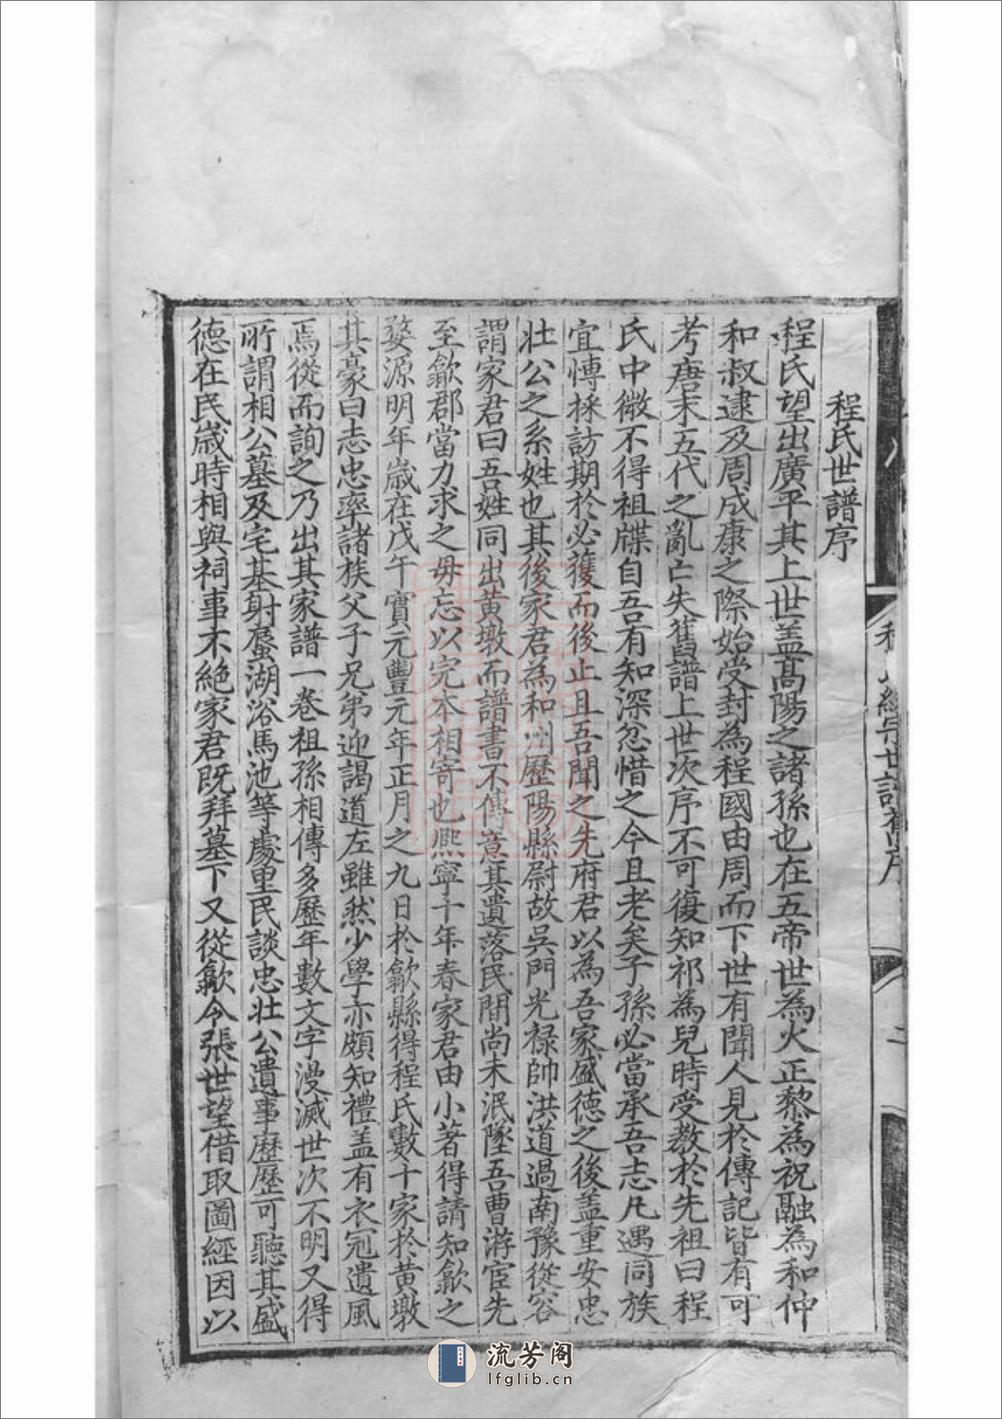 程氏世譜序
程氏望出廣平其上世盖髙陽之諸孫也在五帝世為火正黎為祝融為和仲
和叔逮及周成康之際始受封為程國由周而下世有聞人見於傳記皆有可
考唐末五代之亂亡失舊譜上世次序不可復知祁為兒時受教於先祖曰程
氏中微不得祖牒自吾有知深忿惜之今且老矣子孫必當承吾志凡遇同族
宜慱採訪期於必獲而後止且吾聞之先府君以為吾家盛德之後盖重安忠
壮公之系姓也其後家君為和州歷陽縣尉故吳門光禄帥洪道過南豫從容
謂家君曰吾姓同出黄墩而譜書不傳意其遺落民間尚未泯墜吾曹游宦先
至歙郡當力求之毋忘以完本相寄也熈寧十年春家君由小著得請知歙之
婺源明年歳在戊午實元豐元年正月之九日於歙縣得程氏數十家於黄墩
其豪曰志忠率諸族父子兄弟迎謁道左雖然少學亦頗知禮盖有衣冠遺風
焉從而詢之乃出其家譜一卷祖孫相傳多歷年數文字漫滅世次不明又得
所謂相公墓及宅基射蜃湖浴馬池等處里民談忠壮公遺事歷歷可聽其盛
德在民歳時相與祠事不絶家君既拜墓下又從歙令張世望借取圖經因以
流芳阁
lfglib.cn